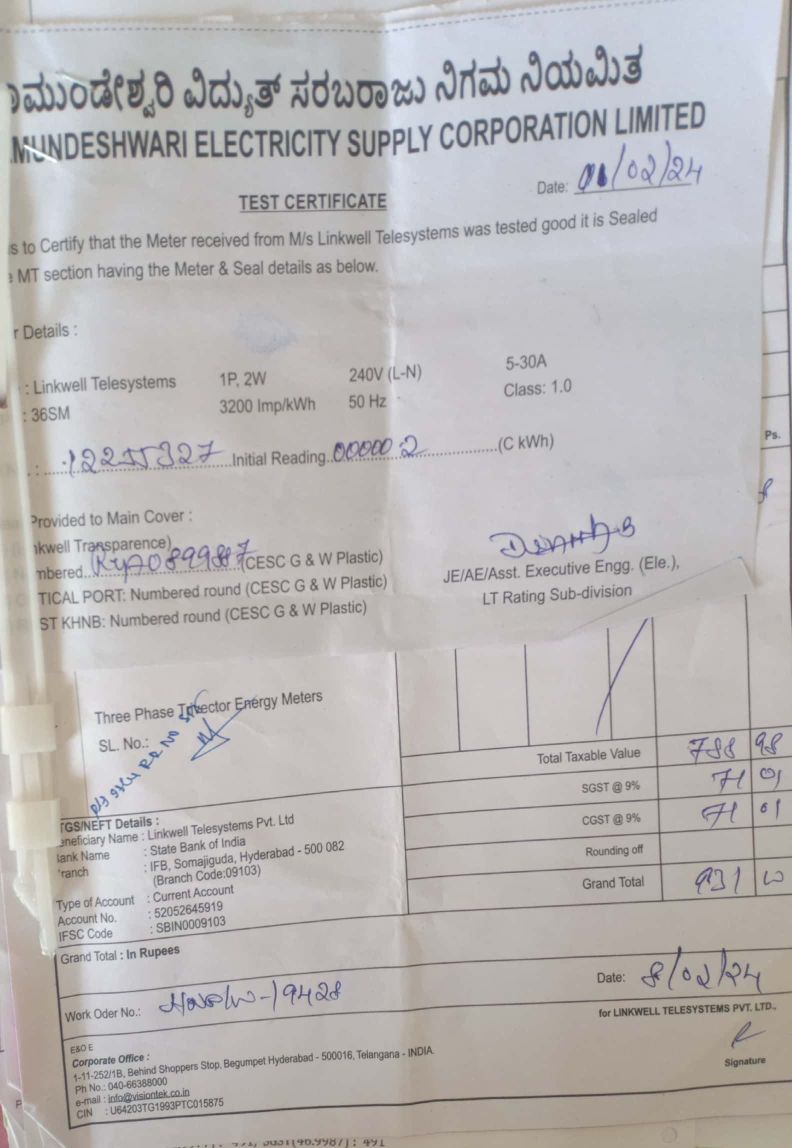 ಾಮುಂಡೇಶ್ವರಿ ವಿದ್ಯುತ್ ಸರಬರಾಜು ನಿಗಮ ನಿಯಮಿತ
MUNDESHWARI ELECTRICITY SUPPLY CORPORATION LIMITED
Date: 01/02/24
TEST CERTIFICATE
s to Certify that the Meter received from M/s Linkwell Telesystems was tested good it is Sealed
e MT section having the Meter & Seal details as below.
r Details :
: Linkwell Telesystems 1P, 2W 240V (L-N) 5-30A
: 36SM 3200 Imp/kWh 50 Hz Class: 1.0
: 12255327 Initial Reading 00000.2 (C kWh)
Provided to Main Cover :
nkwell Transparence)
mbered (CESC G & W Plastic)
TICAL PORT: Numbered round (CESC G & W Plastic)
ST KHNB: Numbered round (CESC G & W Plastic)
JE/AE/Asst. Executive Engg. (Ele.),
LT Rating Sub-division
Ps.
Three Phase Trivector Energy Meters
SL. No.:
Total Taxable Value 788 98
SGST @ 9% 71 01
CGST @ 9% 71 01
Rounding off
Grand Total 931 00
TGS/NEFT Details :
eneficiary Name : Linkwell Telesystems Pvt. Ltd
ank Name : State Bank of India
ranch : IFB, Somajiguda, Hyderabad - 500 082
(Branch Code:09103)
Type of Account : Current Account
Account No. : 52052645919
IFSC Code : SBIN0009103
Grand Total : In Rupees
Work Oder No.: 19428
Date: 8/02/24
for LINKWELL TELESYSTEMS PVT. LTD.,
Signature
E&O E
Corporate Office :
1-11-252/1B, Behind Shoppers Stop, Begumpet Hyderabad - 500016, Telangana - INDIA.
Ph No.: 040-66388000
e-mail : info@visiontek.co.in
CIN : U64203TG1993PTC015875